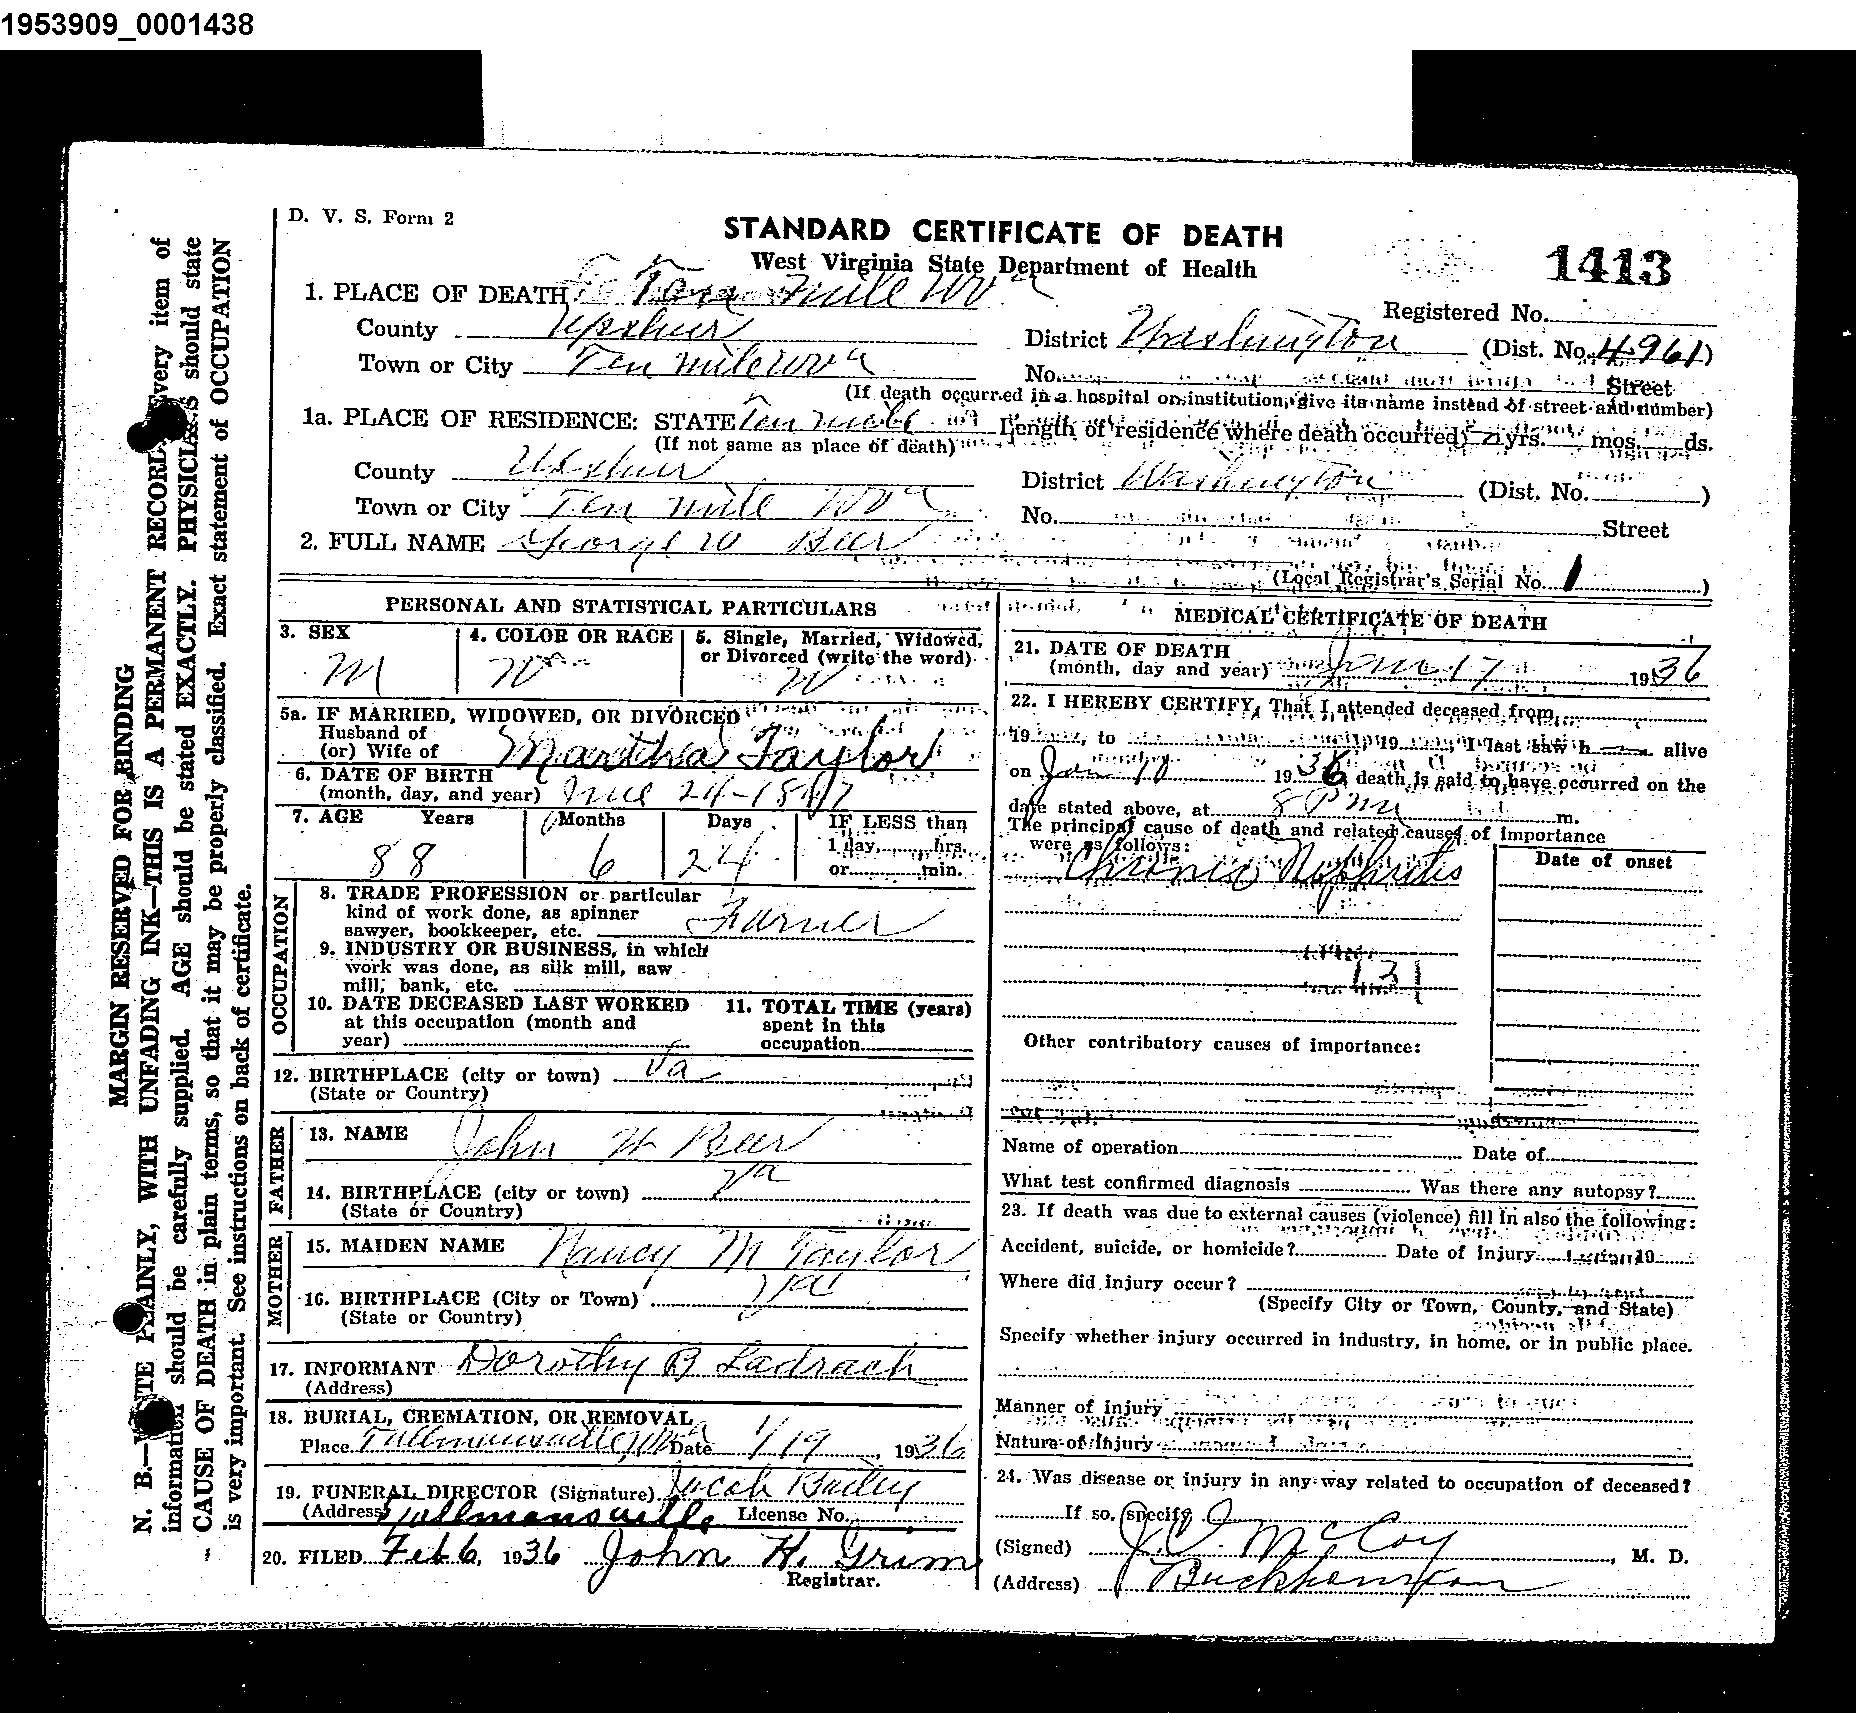 1953909_0001438
D. V. S. Form 2
STANDARD CERTIFICATE OF DEATH
West Virginia State Department of Health
1413
1. PLACE OF DEATH Ten Mile WVa
Registered No.
County Upshur
District Washington (Dist. No. 4961)
Town or City Ten mile WVa
No. Street
(If death occurred in a hospital or institution, give its name instead of street and number)
1a. PLACE OF RESIDENCE: STATE Ten mile
Length of residence where death occurred yrs. mos. ds.
(If not same as place of death)
County Upshur
District Washington (Dist. No. )
Town or City Ten mile WVa
No. Street
2. FULL NAME George W Beer
(Local Registrar's Serial No. 1 )
PERSONAL AND STATISTICAL PARTICULARS
3. SEX
M
4. COLOR OR RACE
W
5. Single, Married, Widowed,
or Divorced (write the word)
W
5a. IF MARRIED, WIDOWED, OR DIVORCED
Husband of
(or) Wife of Martha Taylor
6. DATE OF BIRTH
(month, day, and year) June 24-1847
7. AGE Years Months Days IF LESS than
1 day, hrs.
88 6 24 or min.
OCCUPATION
8. TRADE PROFESSION or particular
kind of work done, as spinner
sawyer, bookkeeper, etc. Farmer
9. INDUSTRY OR BUSINESS, in which
work was done, as silk mill, saw
mill, bank, etc.
10. DATE DECEASED LAST WORKED
at this occupation (month and
year)
11. TOTAL TIME (years)
spent in this
occupation
12. BIRTHPLACE (city or town) Va
(State or Country)
FATHER
13. NAME John W Beer
14. BIRTHPLACE (city or town) Va
(State or Country)
MOTHER
15. MAIDEN NAME Nancy M Taylor
16. BIRTHPLACE (City or Town) Va
(State or Country)
17. INFORMANT Dorothy B Ladrach
(Address)
18. BURIAL, CREMATION, OR REMOVAL
Place Tallmansville, WVa Date 1/19, 1936
19. FUNERAL DIRECTOR (Signature) Jacob Bailey
(Address) Tallmansville License No.
20. FILED Feb 6, 1936 John H. Grim
Registrar.
MEDICAL CERTIFICATE OF DEATH
21. DATE OF DEATH
(month, day and year) Jan 17 1936
22. I HEREBY CERTIFY, That I attended deceased from
19 , to 19 , I last saw h alive
on Jan 10 1936, death is said to have occurred on the
date stated above, at 8 Pm m.
The principal cause of death and related causes of importance
were as follows:
Date of onset
Chronic Nephritis
131
Other contributory causes of importance:
Name of operation Date of
What test confirmed diagnosis Was there any autopsy?
23. If death was due to external causes (violence) fill in also the following:
Accident, suicide, or homicide? Date of injury 19
Where did injury occur?
(Specify City or Town, County, and State)
Specify whether injury occurred in industry, in home, or in public place.
Manner of injury
Nature of injury
24. Was disease or injury in any way related to occupation of deceased?
If so, specify
(Signed) McCoy, M. D.
(Address) Buckhannon
MARGIN RESERVED FOR BINDING
N. B.—WRITE PLAINLY, WITH UNFADING INK—THIS IS A PERMANENT RECORD. Every item of
information should be carefully supplied. AGE should be stated EXACTLY. PHYSICIANS should state
CAUSE OF DEATH in plain terms, so that it may be properly classified. Exact statement of OCCUPATION
is very important. See instructions on back of certificate.